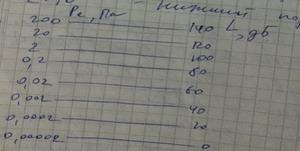 нижний
Pe, Па L, дБ
200 140
20 120
2 100
0,2 80
0,02 60
0,002 40
0,0002 20
0,00002 0